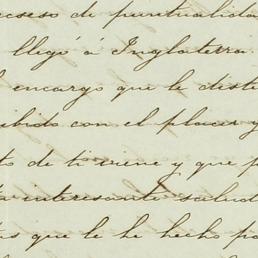 esceso de puntualida
llegó á Inglaterra.
encargo que le diste
ibido con el placer y
to de ti viene y que p
interesante salud
as que le he hecho po